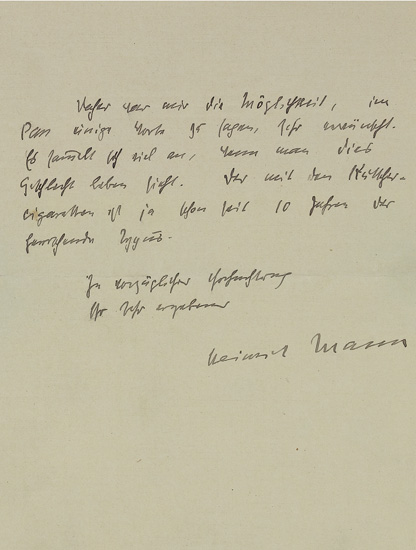 Daher war mir die Möglichkeit, im
Pan einige Worte zu sagen, sehr erwünscht.
Es sammelt sich viel an, wenn man dies
Geschlecht leben sieht. Der mit den
cigaretten ist ja schon seit 10 Jahren der
herrschende Typus.
In vorzüglicher Hochachtung
Ihr sehr ergebener
Heinrich Mann